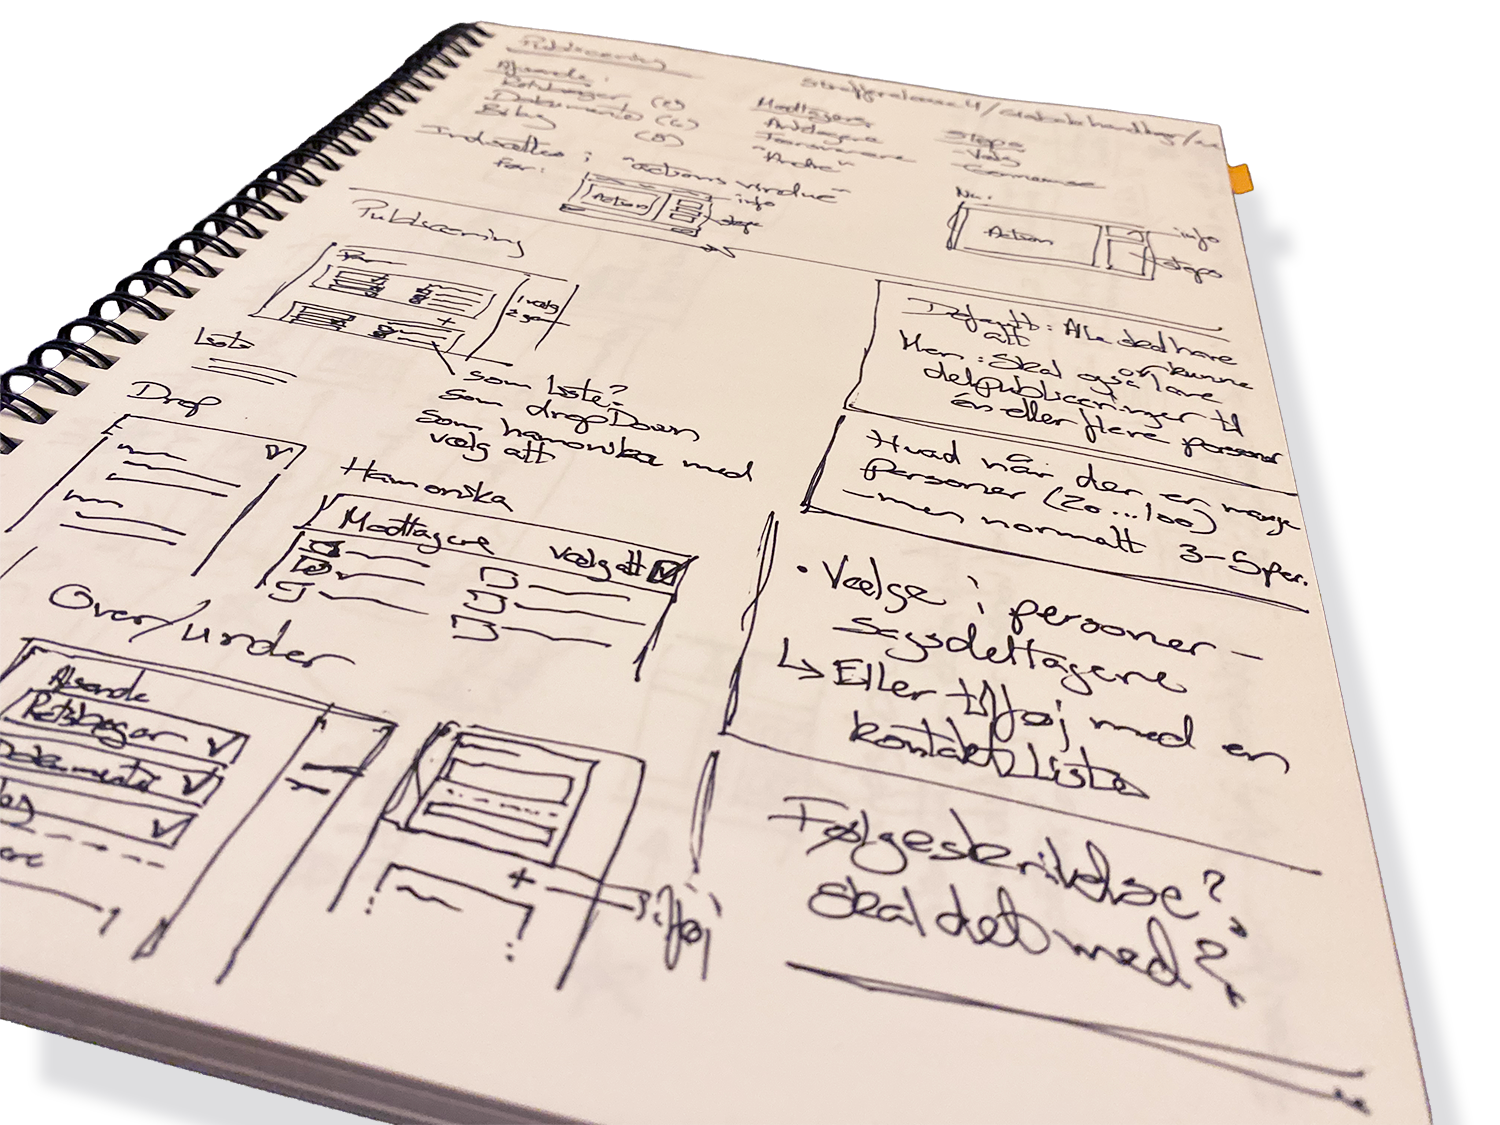 Publicering
Afsende:
Retsbøger (2)
Dokumenter (6)
Bilag (8)
Modtagere
"Andre"
Steps
- Vælg
Indsættes i "actions vindue"
Før:
Action
info
steps
Nu:
Action
info
steps
Publicering
1 vælg
Liste
som liste?
som dropDown
som hamonika med
vælg alt
Drop
Hamonika
Modtagere vælg alt
Over/under
Afsende
Retsbøger
Dokumenter
+ Tilføj
Default: Alle skal have
alt
Men: Skal også kunne
lave
delpubliceringer til
én eller flere personer
Hvad når der er mange
personer (20...100)
- men normalt 3-5 per.
• Vælge i personer -
sagsdeltagere
↳ Eller tilføj med en
kontakt liste
Følgeskrivelse?
Skal det med?